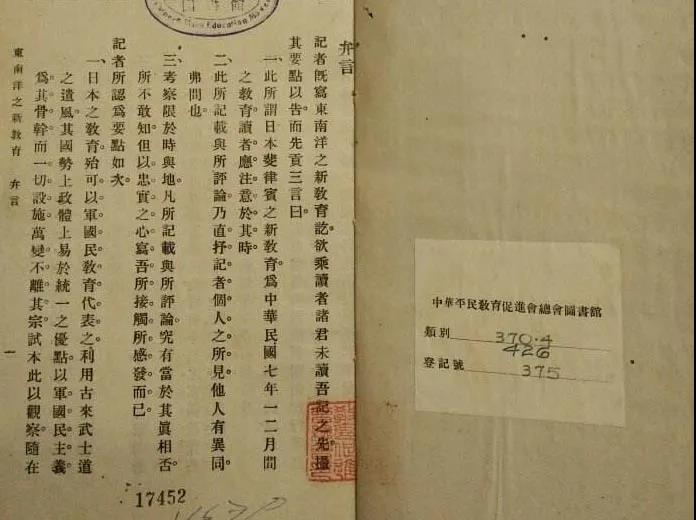 弁言
記者既寫東南洋之新教育訖。欲乘讀者諸君未讀吾記之先。撮
其要點以告。而先貢三言曰。
一、此所謂日本斐律賓之新教育。爲中華民國七年一二月間
之教育。讀者應注意於其時。
二、此所記載與所評論。乃直抒記者個人之所見。他人有異同。
弗問也。
三、考察限於時與地。凡所記載與所評論。究有當於其眞相否。
所不敢知。但以忠實之心。寫吾所接觸所感發而已。
記者所認爲要點如次。
一、日本之教育。殆可以軍國民教育代表之。利用古來武士道
之遺風。其國勢上政體上易於統一之優點。以軍國民主義
爲其骨幹。而一切設施。萬變不離其宗。試本此以觀察。隨在
東南洋之新教育 弁言 一
17452
Mass Education
中華平民教育促進會總會圖書館
類別 370.4
426
登記號 375